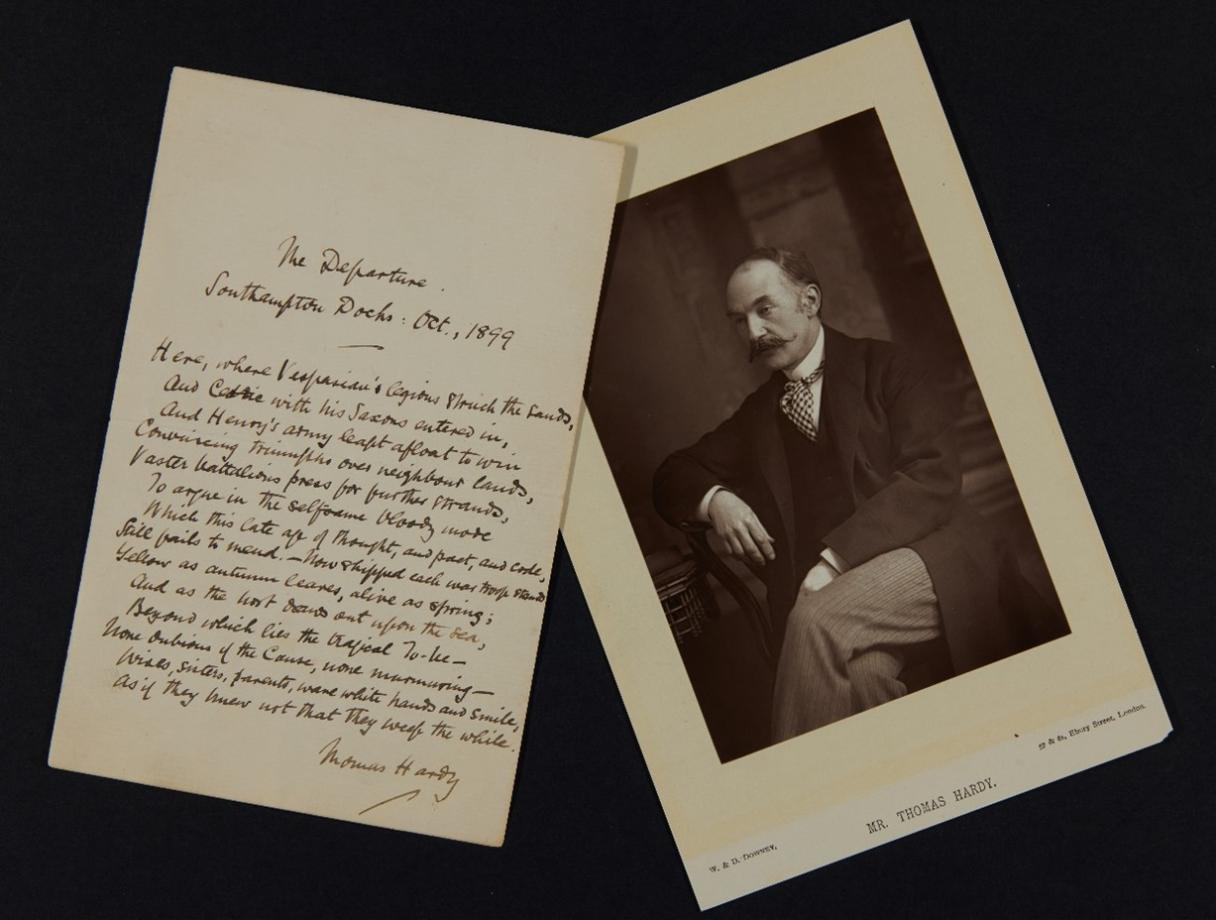 The Departure.
Southampton Docks: Oct., 1899
Here, where Vespasian's legions struck the sands,
And Cerdic with his Saxons entered in,
And Henry's army leapt afloat to win
Convincing triumphs over neighbour lands,
Vaster battalions press for further strands,
To argue in the selfsame bloody mode
Which this late age of thought, and pact, and code,
Still fails to mend. —Now shipped each war troop
Yellow as autumn leaves, alive as spring;
And as the host draws out upon the sea,
Beyond which lies the tragical To-be—
None dubious of the Cause, none murmuring—
Wives, sisters, parents, wave white hands and smile,
As if they knew not that they weep the while.
Thomas Hardy
W. & D. DOWNEY,
MR. THOMAS HARDY.
Ebury Street, London.